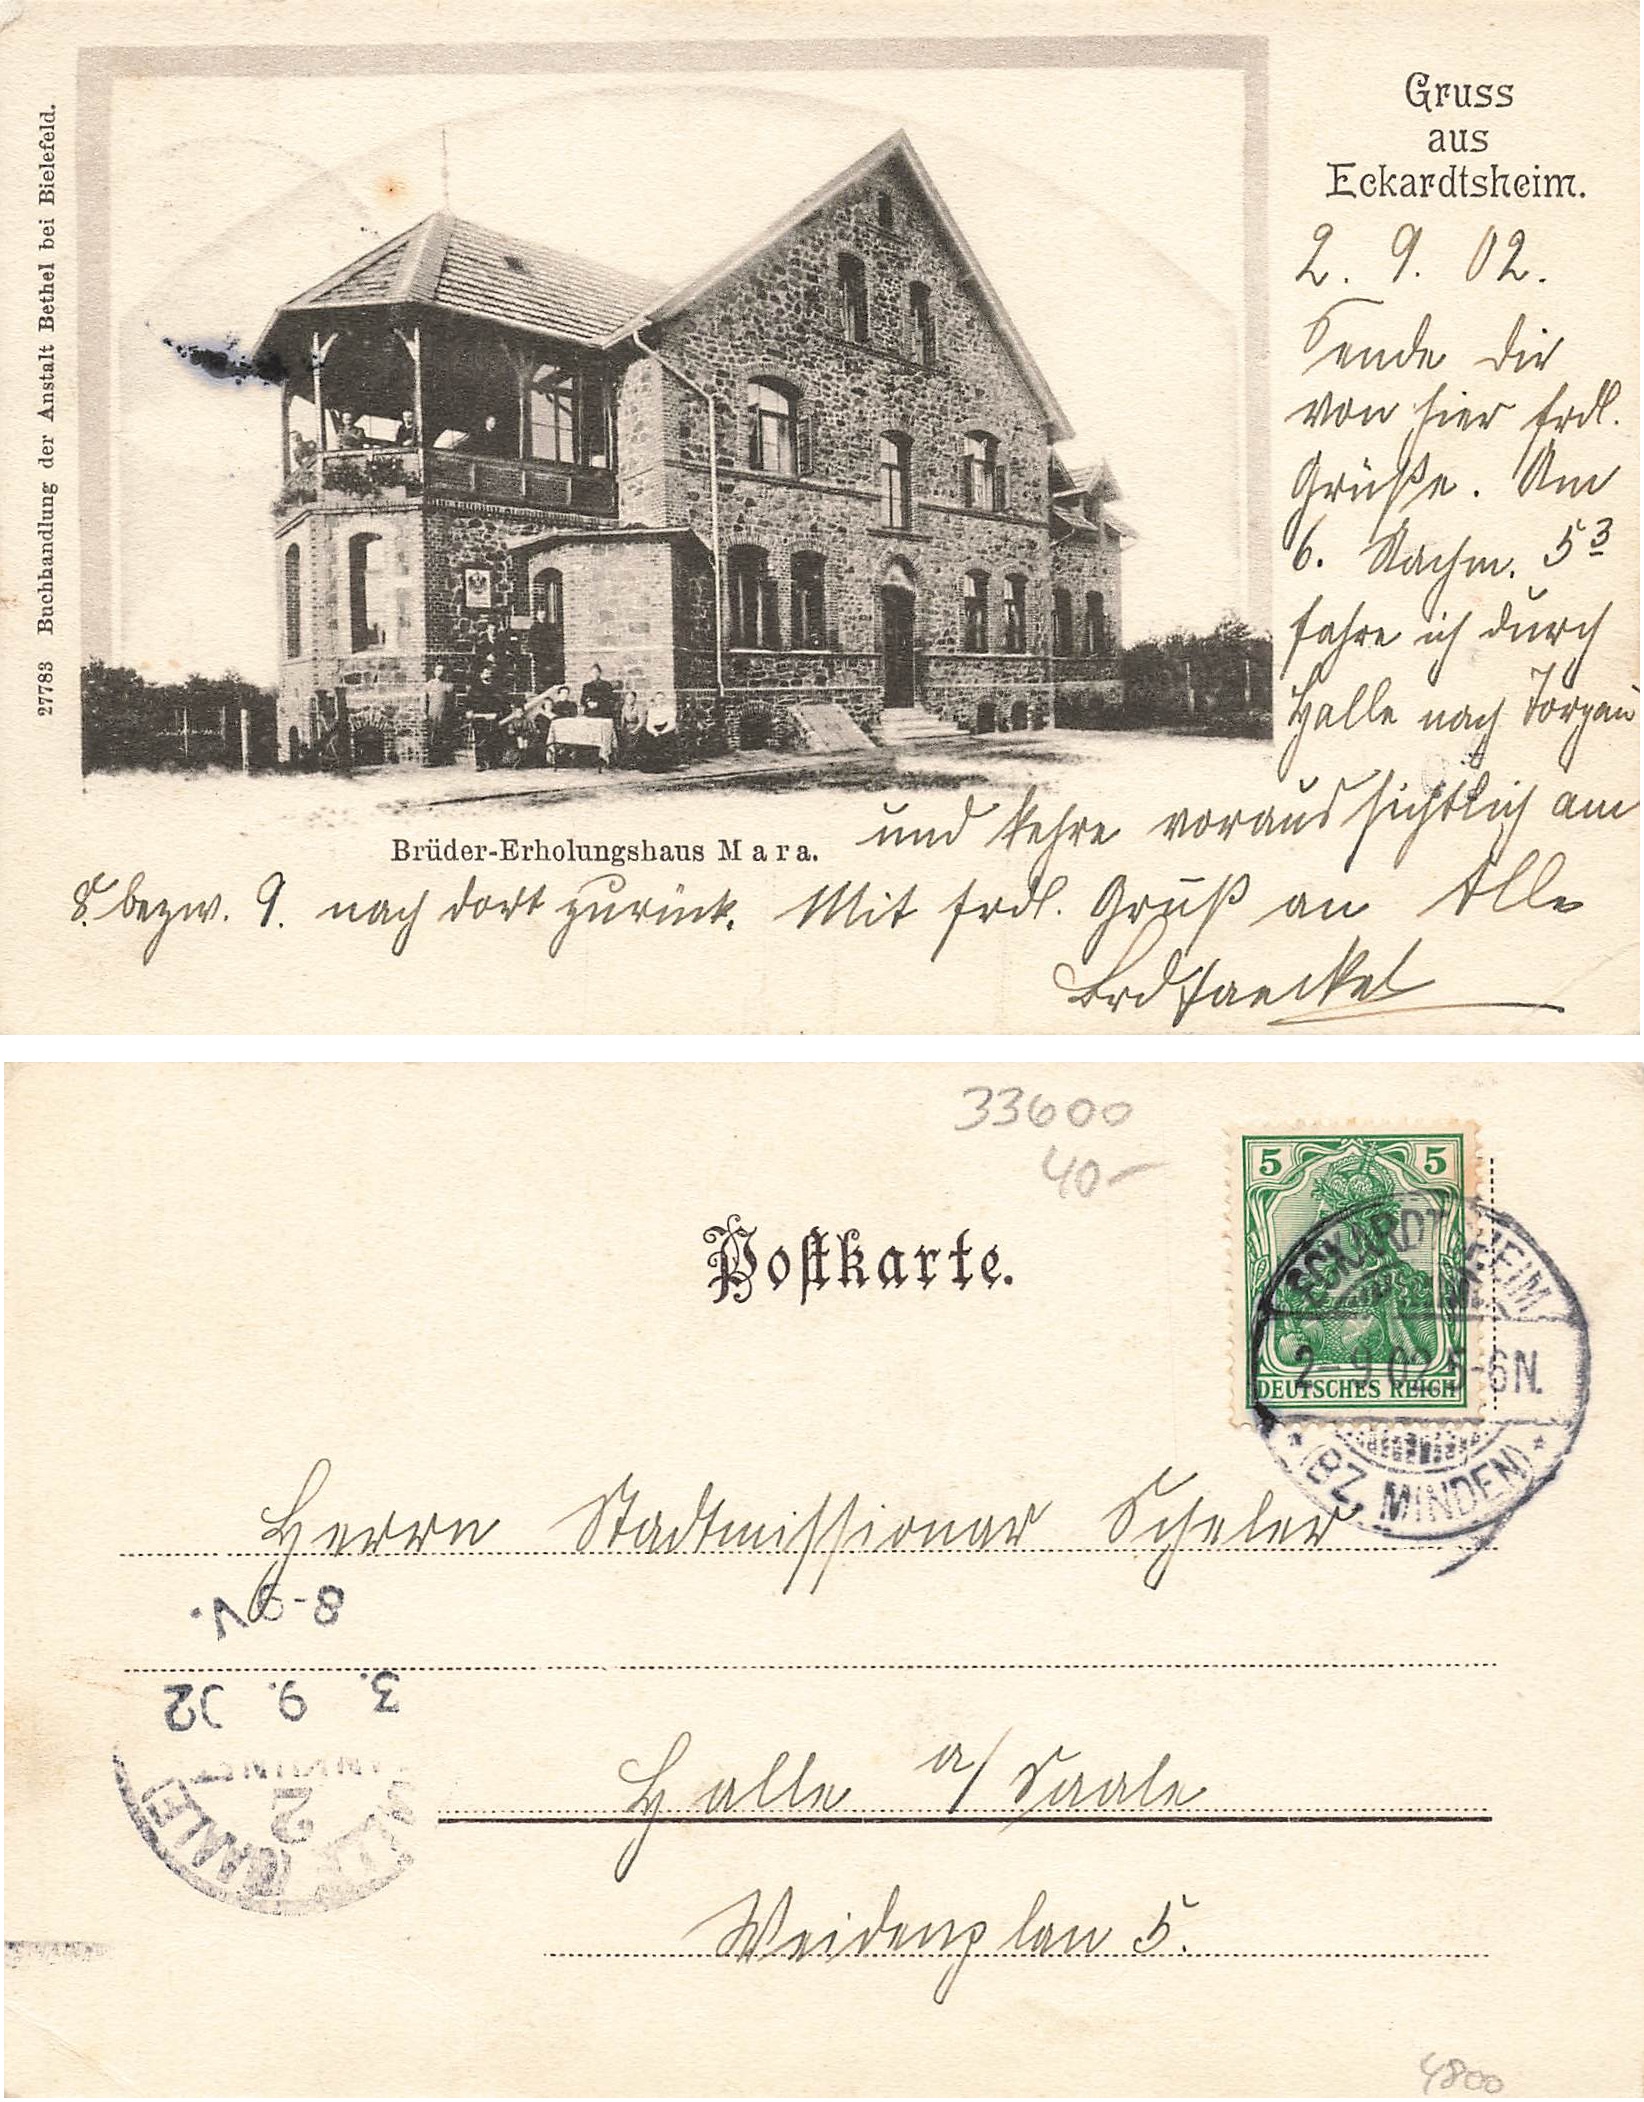 27783 Buchhandlung der Anstalt Bethel bei Bielefeld.
Gruss
aus
Eckardtsheim.
2. 9. 02.
Sende Dir
von hier frdl.
Grüße. Am
6. Nachm. 5 3
fahre ich durch
Halle nach Torgau
und kehre voraussichtlich am
Brüder-Erholungshaus Mara.
8. bezw. 9. nach dort zurück. Mit frdl. Gruß an Alle
33600
40-
5 5
DEUTSCHES REICH
ECKARDTSHEIM
2-9 02 5-6N.
* (BZ. MINDEN) *
Postkarte.
Herrn Stadtmissionar Scheler
8-9V.
3. 9. 02
2
Halle a/Saale
Weidenplan 5.
4800